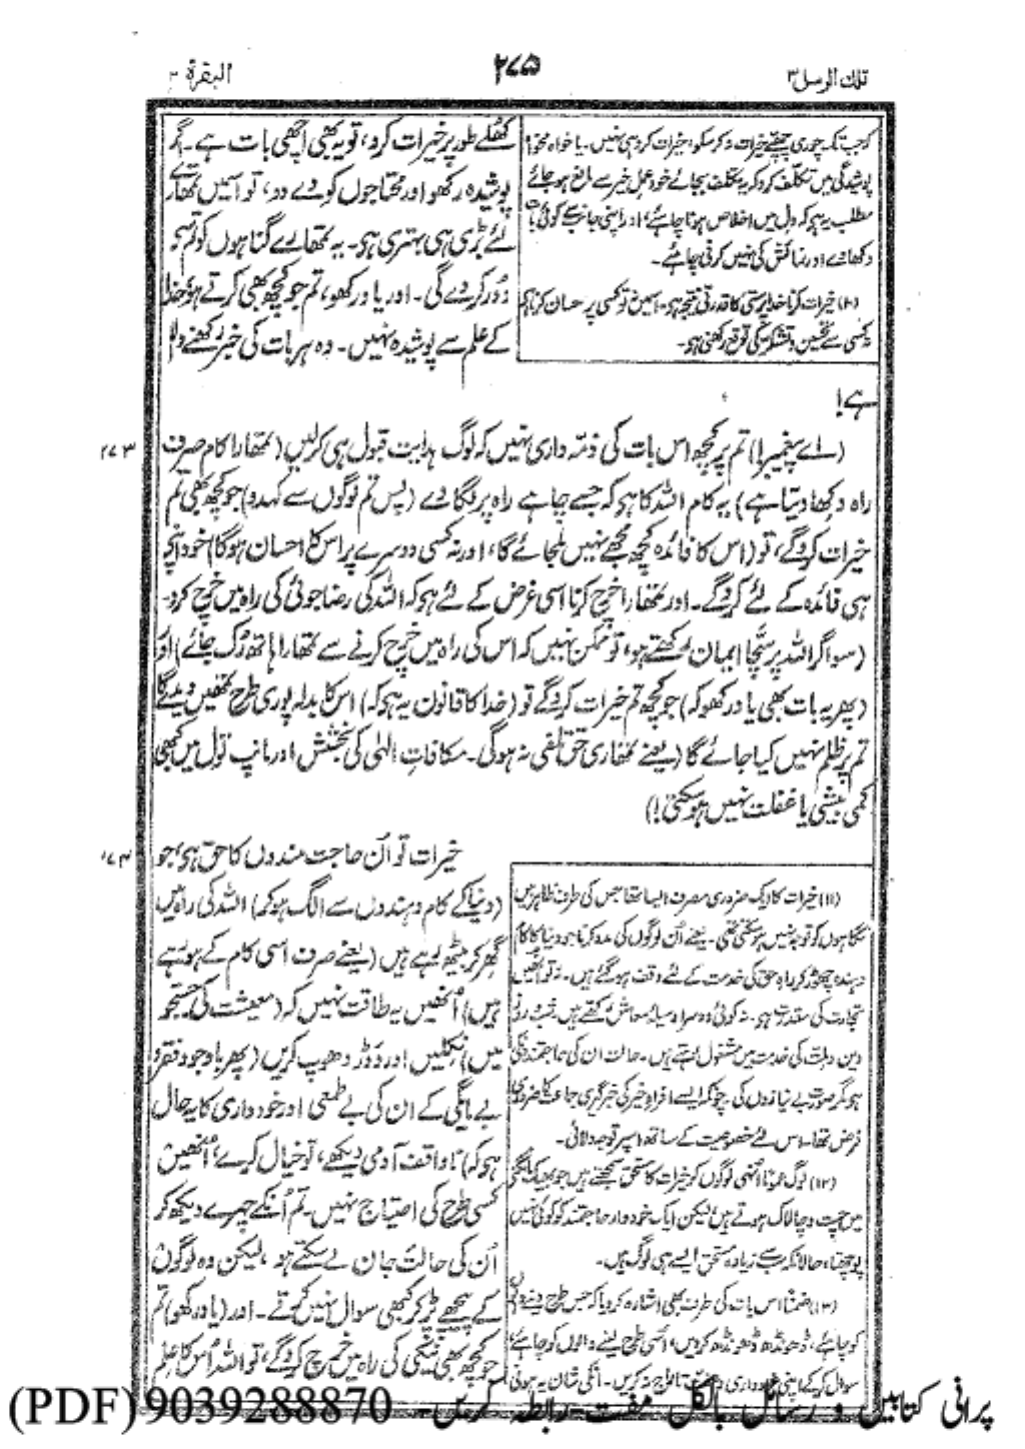 تلك الرسل ۳
۲۷۵
البقرة ۲
کھلے طور پر خیرات کرو، تو یہ بھی اچھی بات ہے۔ اگر
پوشیدہ رکھو اور محتاجوں کو دے دو، تو اسمیں تمھارے
لئے بڑی ہی بہتری ہو۔ یہ تمھارے گناہوں کو تم سے
دُور کر دے گی۔ اور یاد رکھو، تم جو کچھ بھی کرتے ہو، خدا
کے علم سے پوشیدہ نہیں۔ وہ ہر بات کی خبر رکھنے والا
کہ جب تک چوری چھپے خیرات نہ کر سکو، خیرات کرو ہی نہیں۔ یا خواہ مخواہ
پوشیدگی میں تکلف کرو کہ یہ تکلف بجائے خود عمل خیر سے مانع ہو جائے
مطلب یہ ہو کہ دل میں اخلاص ہونا چاہئے، اور اپنی جانب سے کوئی بات
دکھاوے اور نمائش کی نہیں کرنی چاہئے۔
(۱۰) خیرات کرنا خدا پرستی کا قدرتی نتیجہ ہو۔ اسمیں نہ تو کسی پر احسان کرنا ہو
نہ کسی سے تحسین و تشکر کی توقع رکھنی ہو۔
ہے!
۲۷۳
(اے پیغمبر!) تم پر کچھ اس بات کی ذمّہ داری نہیں کہ لوگ ہدایت قبول ہی کر لیں (تمھارا کام صرف
راہ دکھا دینا ہے) یہ کام اللہ کا ہو کہ جسے چاہے راہ پر لگا دے (پس تم لوگوں سے کہدو) جو کچھ بھی تم
خیرات کرو گے، تو (اس کا فائدہ کچھ مجھے نہیں ملجائے گا، اور نہ کسی دوسرے پر اس کا احسان ہوگا) خود اپنے
ہی فائدہ کے لئے کرو گے۔ اور تمھارا خرچ کرنا اسی غرض کے لئے ہو کہ اللہ کی رضا جوئی کی راہ میں خرچ کرو۔
(سو اگر اللہ پر سچّا ایمان رکھتے ہو، تو ممکن نہیں کہ اس کی راہ میں خرچ کرنے سے تمھارا ہاتھ رُک جائے) اور
(پھر یہ بات بھی یاد رکھو کہ) جو کچھ تم خیرات کرو گے تو (خدا کا قانون یہ ہو کہ) اس کا بدلہ پوری طرح تمھیں دیدے گا
تم پر ظلم نہیں کیا جائے گا (یعنے تمھاری حق تلفی نہ ہوگی۔ مکافات الٰہی کی بخشش اور ماپ تول میں کبھی
کمی بیشی یا غفلت نہیں ہو سکتی!)
۲۷۴
خیرات تو اُن حاجت مندوں کا حق ہو، جو
(دنیا کے کام دہندوں سے الگ ہو کر) اللہ کی راہ میں
گھِر کر بیٹھ رہے ہیں (یعنے صرف اسی کام کے ہو رہے
ہیں) اُنھیں یہ طاقت نہیں کہ (معیشت کی جستجو
میں) نکلیں اور دَوڑ دھوپ کریں (پھر باوجود فقر و
بے مایگی کے ان کی بے طمعی اور خود داری کا یہ حال
ہو کہ) ناواقف آدمی دیکھے، تو خیال کرے، اُنھیں
کسی طرح کی احتیاج نہیں۔ تم اُنکے چہرے دیکھ کر
اُن کی حالت جان لے سکتے ہو، لیکن وہ لوگوں
کے پیچھے پڑ کر کبھی سوال نہیں کرتے۔ اور (یاد رکھو) تم
جو کچھ بھی نیکی کی راہ میں خرچ کرو گے، تو اللہ اُس کا علم
(۱۱) خیرات کا ایک ضروری مصرف ایسا تھا جس کی طرف ظاہر بیں
نگاہوں کو توجہ نہیں ہو سکتی تھی۔ یعنے اُن لوگوں کی مدد کرنا جو دنیا کا کام
دہندہ چھوڑ کر راہ حق کی خدمت کے لئے وقف ہو گئے ہیں۔ نہ تو اُنھیں
تجارت کی مقدرت ہو۔ نہ کوئی دوسرا وسیلۂ معاش رکھتے ہیں۔ شب و روز
دین و ملت کی خدمت میں مشغول رہتے ہیں۔ حالت ان کی حاجتمندوں کی
ہو مگر صورت بے نیازوں کی۔ چونکہ ایسے افراد خیر کی خبر گیری جماعت کا ضروری
فرض تھا۔ اس لئے خصوصیت کے ساتھ اسپر توجہ دلائی۔
(۱۲) لوگ عموماً اُنھی لوگوں کو خیرات کا مستحق سمجھتے ہیں جو بھیک مانگنے
میں چست و چالاک ہوتے ہیں، لیکن ایک خود دار حاجتمند کو کوئی نہیں
پوچھتا، حالانکہ سب سے زیادہ مستحق ایسے ہی لوگ ہیں۔
(۱۳) ضمناً اس بات کی طرف بھی اشارہ کر دیا کہ جس طرح دینے والوں
کو چاہئے، ڈھونڈھ ڈھونڈھ کر دیں، اُسی طرح لینے والوں کو چاہئے،
سوال کر کے اپنی خودداری و عزت تاراج نہ کریں۔ اُنکی شان یہ ہونی
پرانی کتابیں و رسائل بالکل مفت رابطہ کریں۔ 9039288870 (PDF)